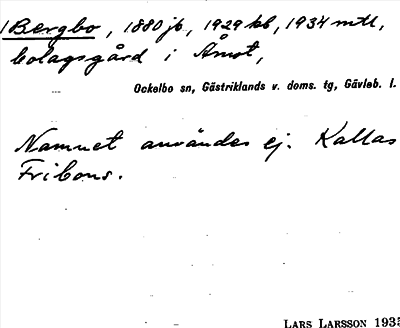 Bergbo, 1880 jb, 1929 kb, 1934 mtl,
bolagsgård i Åmot,
Ockelbo sn, Gästriklands v. doms. tg, Gävleb. l.
Namnet användes ej. Kallas
Fribons.
LARS LARSSON 1935